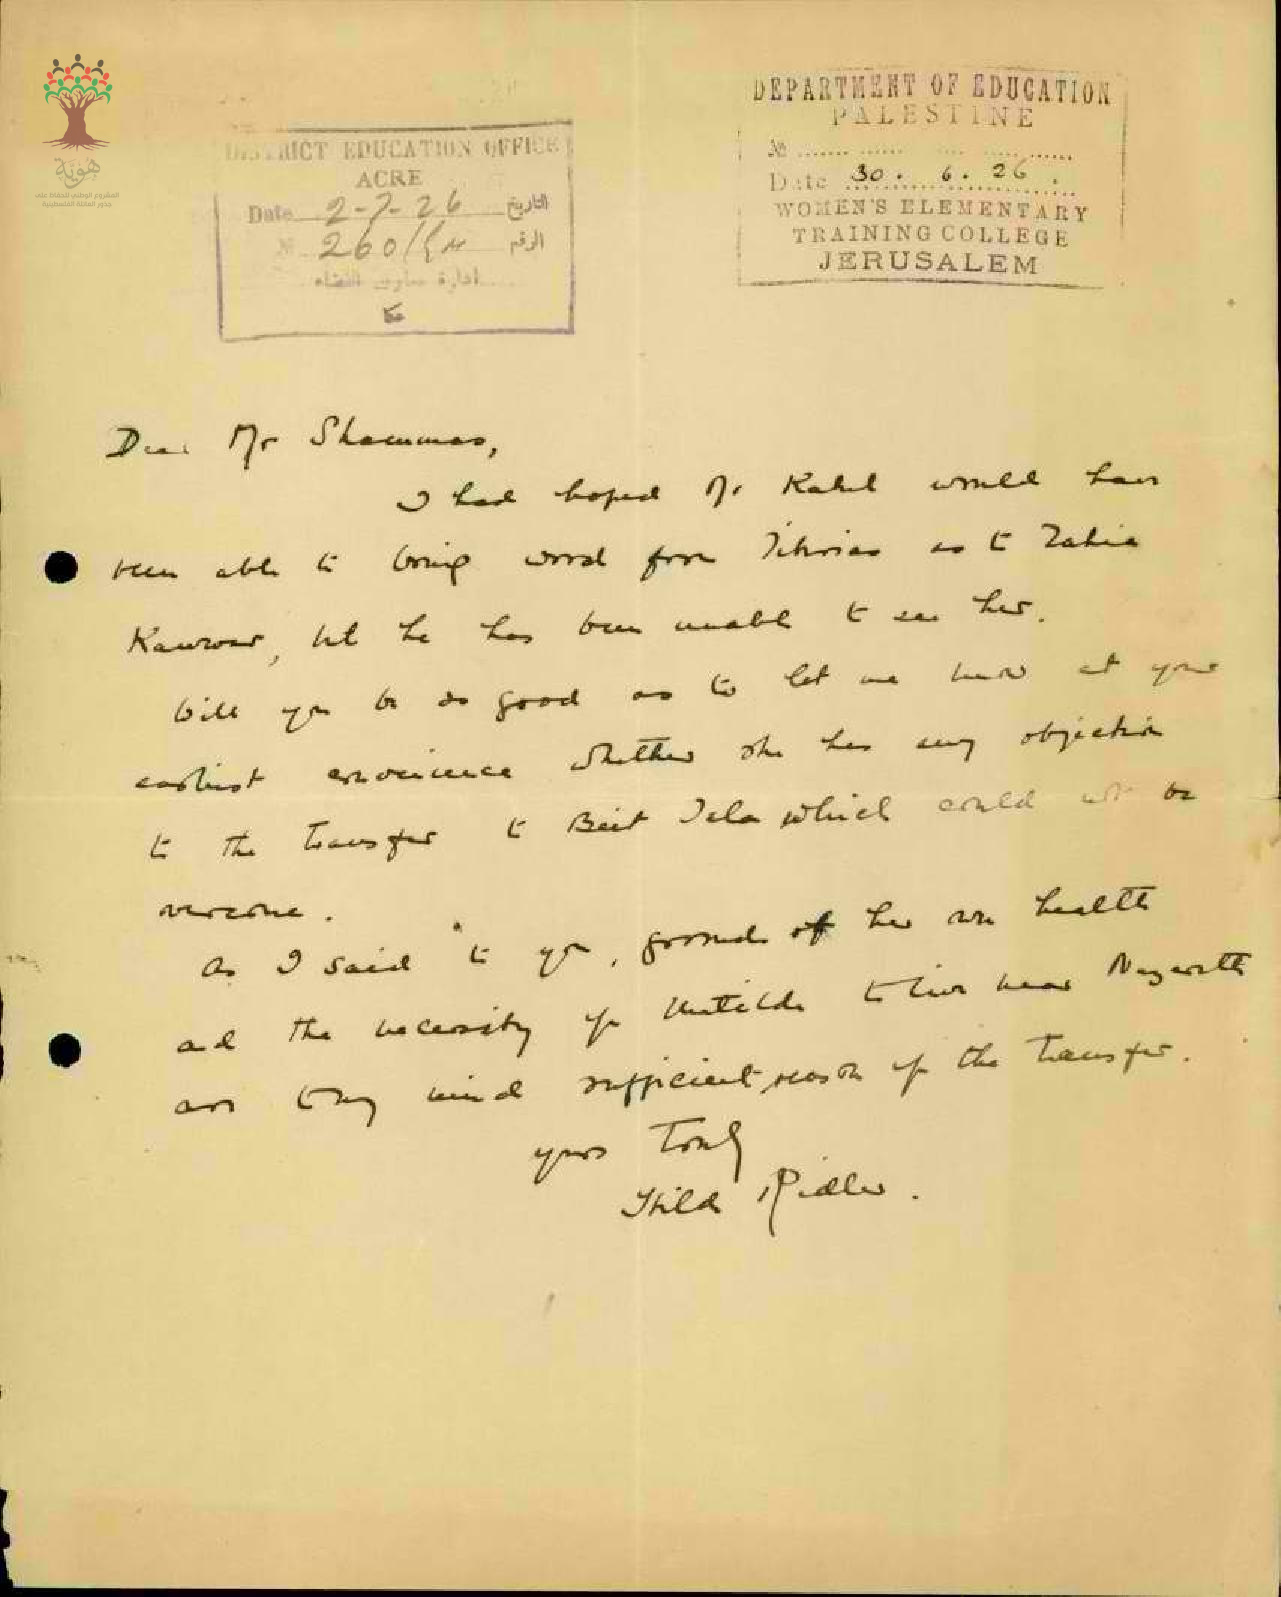 هوية
المشروع الوطني للحفاظ على
جذور العائلة الفلسطينية
DISTRICT EDUCATION OFFICE
ACRE
Date 2-7-26 التاريخ
№ 260/ الرقم
ادارة معارف القضاء
عكا
DEPARTMENT OF EDUCATION
PALESTINE
№
Date 30. 6. 26.
WOMEN'S ELEMENTARY
TRAINING COLLEGE
JERUSALEM
Dear Mr Shammas,
I had hoped Mr Kahil would have
been able to bring word from Tiberias as to Zahia
Kawwar, but he has been unable to see her.
Will you be so good as to let me know at your
earliest convenience whether she has any objection
to the transfer to Beit Jala which could not be
overcome.
As I said to you, grounds of her own health
and the necessity for Matilda to live near Nazareth
are to my mind sufficient reason for the transfer.
yours truly
Hilda Ridler.